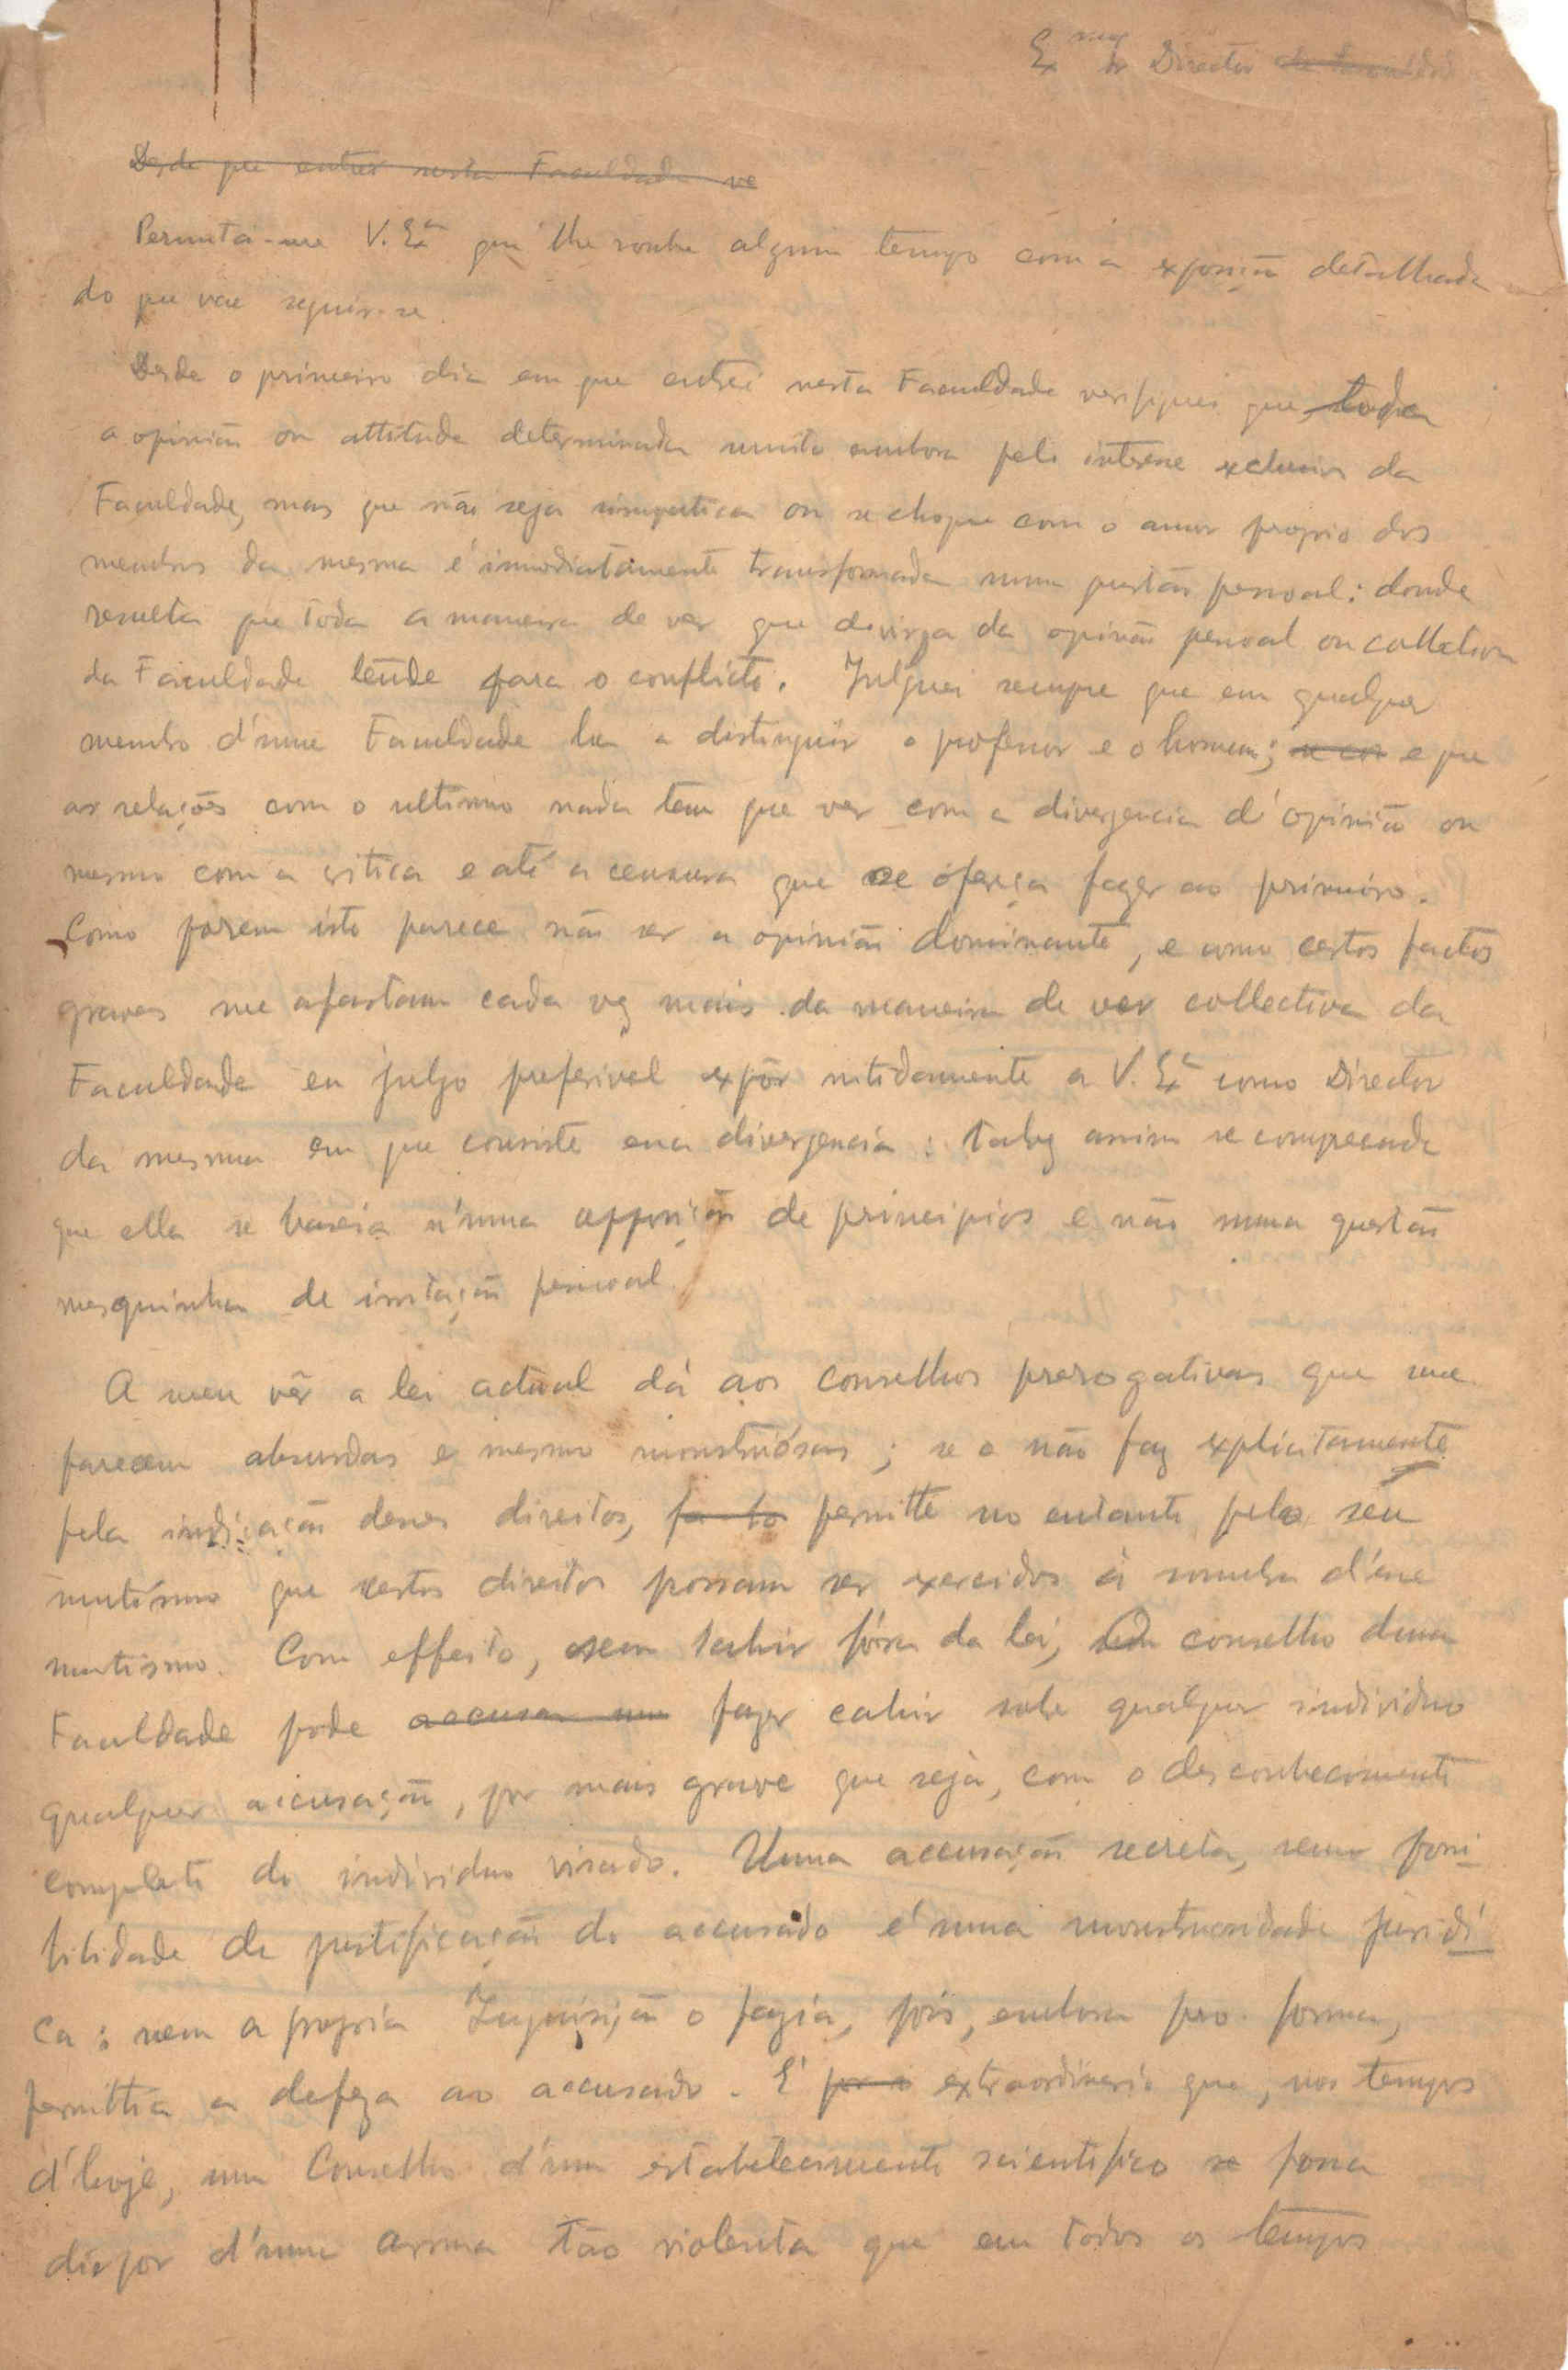 Ex.mo Sr Director da Faculdade
Desde que entrei nesta Faculdade ve
Permita-me V. Exa que lhe roube algum tempo com a exposição detalhada
do que vae seguir-se.
Desde o primeiro dia em que entrei nesta Faculdade verifiquei que toda
a opinião ou attitude determinada muito embora pelo interesse exclusivo da
Faculdade, mas que não seja simpatica ou se choque com o amor proprio dos
membros da mesma é immediatamente transformada numa questão pessoal: donde
resulta que toda a maneira de ver que divirja da opinião pessoal ou collectiva
da Faculdade tende para o conflicto. Julguei sempre que em qualquer
membro d'uma Faculdade ha a distinguir o professor e o homem; e que
as relações com o ultimo nada tem que ver com a divergencia d'opinião ou
mesmo com a critica e até a censura que se ofereça fazer ao primeiro.
Como porem isto parece não ser a opinião dominante, e como certos factos
graves me afastam cada vez mais da maneira de ver collectiva da
Faculdade eu julgo preferivel expôr nitidamente a V. Exa como Director
da mesma em que consiste essa divergencia: talvez assim se comprehenda
que ella se baseia n'uma opposição de principios e não numa questão
mesquinha de irritação pessoal.
A meu vêr a lei actual dá aos conselhos prerogativas que me
parecem absurdas e mesmo monstruósas; se o não faz explicitamente
pela indicação desses direitos, permitte no entanto pelo seu
mutismo que certos direitos possam ser exercidos á sombra d'esse
mutismo. Com effeito, sem sahir fóra da lei, um conselho duma
Faculdade pode accusar um fazer cahir sobre qualquer individuo
qualquer accusação, por mais grave que seja, com o desconhecimento
completo do individuo visado. Uma accusação secreta, sem possi-
bilidade de justificação do accusado é uma monstruosidade juridi-
ca: nem a propria Inquisição o fazia, pois, embora pro forma,
permittia a defeza ao accusado. É extraordinario que, nos tempos
d'hoje, um Conselho d'um estabelecimento scientifico se possa
dispor d'uma arma tão violenta que em todos os tempos